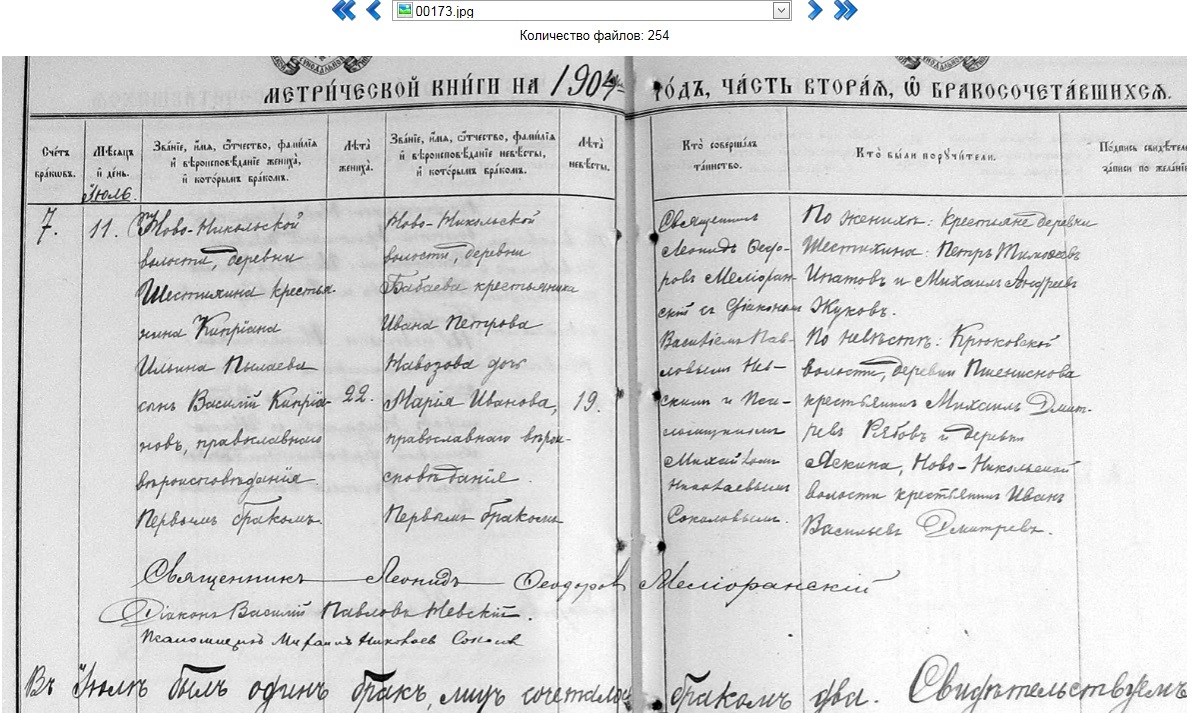 00173.jpg
Количество файлов: 254
МЕТРИ́ЧЕСКОЙ КНИ́ГИ НА 1904 ГО́ДЪ, ЧА́СТЬ ВТОРА́Я, Ѿ БРАКОСОЧЕТА́ВШИХСЯ.
Сче́тъ
бра́ковъ.
Мѣ́сяцъ
и҆ день.
Іюль.
Зва́нїе, и҆́мя, ѻ҆́тчество, фами́лїя
и҆ вѣроисповѣ́данїе жениха̀,
и҆ кото́рымъ бра́комъ.
Лѣ́та
жениха̀.
Зва́нїе, и҆́мя, ѻ҆́тчество, фами́лїя
и҆ вѣроисповѣ́данїе невѣ́сты,
и҆ кото́рымъ бра́комъ.
Лѣ́та
невѣ́сты.
Кто̀ соверша́лъ
та́инство.
Кто̀ бы́ли пор&#x443;чи́тели.
По́дпись свидѣ́тел
за́писи по жела́нї
7.
11.
Ново-Никольской
волости, деревни
Шестихина крестья
нина Кипріана
Ильина Пылаева
сынъ Василій Кипріа-
новъ, православнаго
вѣроисповѣданія
Первымъ бракомъ.
22.
Ново-Никольской
волости, деревни
Бабаева крестьянина
Ивана Петрова
Навозова дочь
Марія Иванова,
православнаго вѣрои-
сповѣданія.
Первымъ бракомъ
19.
Священникъ
Леонидъ Ѳеодо-
ровъ Меліоран-
скій съ Діакономъ
Василіемъ Пав-
ловымъ Нев-
скимъ и Пса-
ломщикомъ
Михаиломъ
Николаевымъ
Соколовымъ.
По женихѣ: крестьяне деревни
Шестихина: Петръ Тимоѳеевъ
Ипатовъ и Михаилъ Андреевъ
Жуковъ.
По невѣстѣ: Крюковской
волости, деревни Пшениснова
крестьянинъ Михаилъ Дмит-
ревъ Рябовъ и деревни
Аекина, Ново-Никольской
волости крестьянинъ Иванъ
Васильевъ Дмитревъ.
Священникъ Леонидъ Ѳеодоровъ Меліоранскій
Діаконъ Василій Павловъ Невскій.
Псаломщикъ Михаилъ Николаевъ Соколов
Въ Іюлѣ былъ одинъ бракъ, лицъ сочеталось бракомъ два. Свидѣтельствуемъ